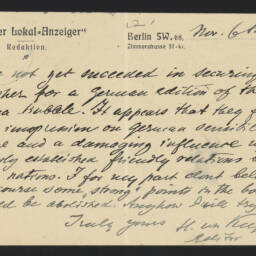 er Lokal-Anzeiger"
Redaktion.
Berlin SW. 68,
Zimmerstrasse 37-41.
Nov. 6
not yet succeeded in securing
for a German edition of the
Bubble. It appears that they
impression on German sensitive
and a damaging influence
established friendly relations be
nations. I for my part dont bel
some "strong" points in the bo
be abolished. Anyhow I will try
Truly yours H. von
Editor